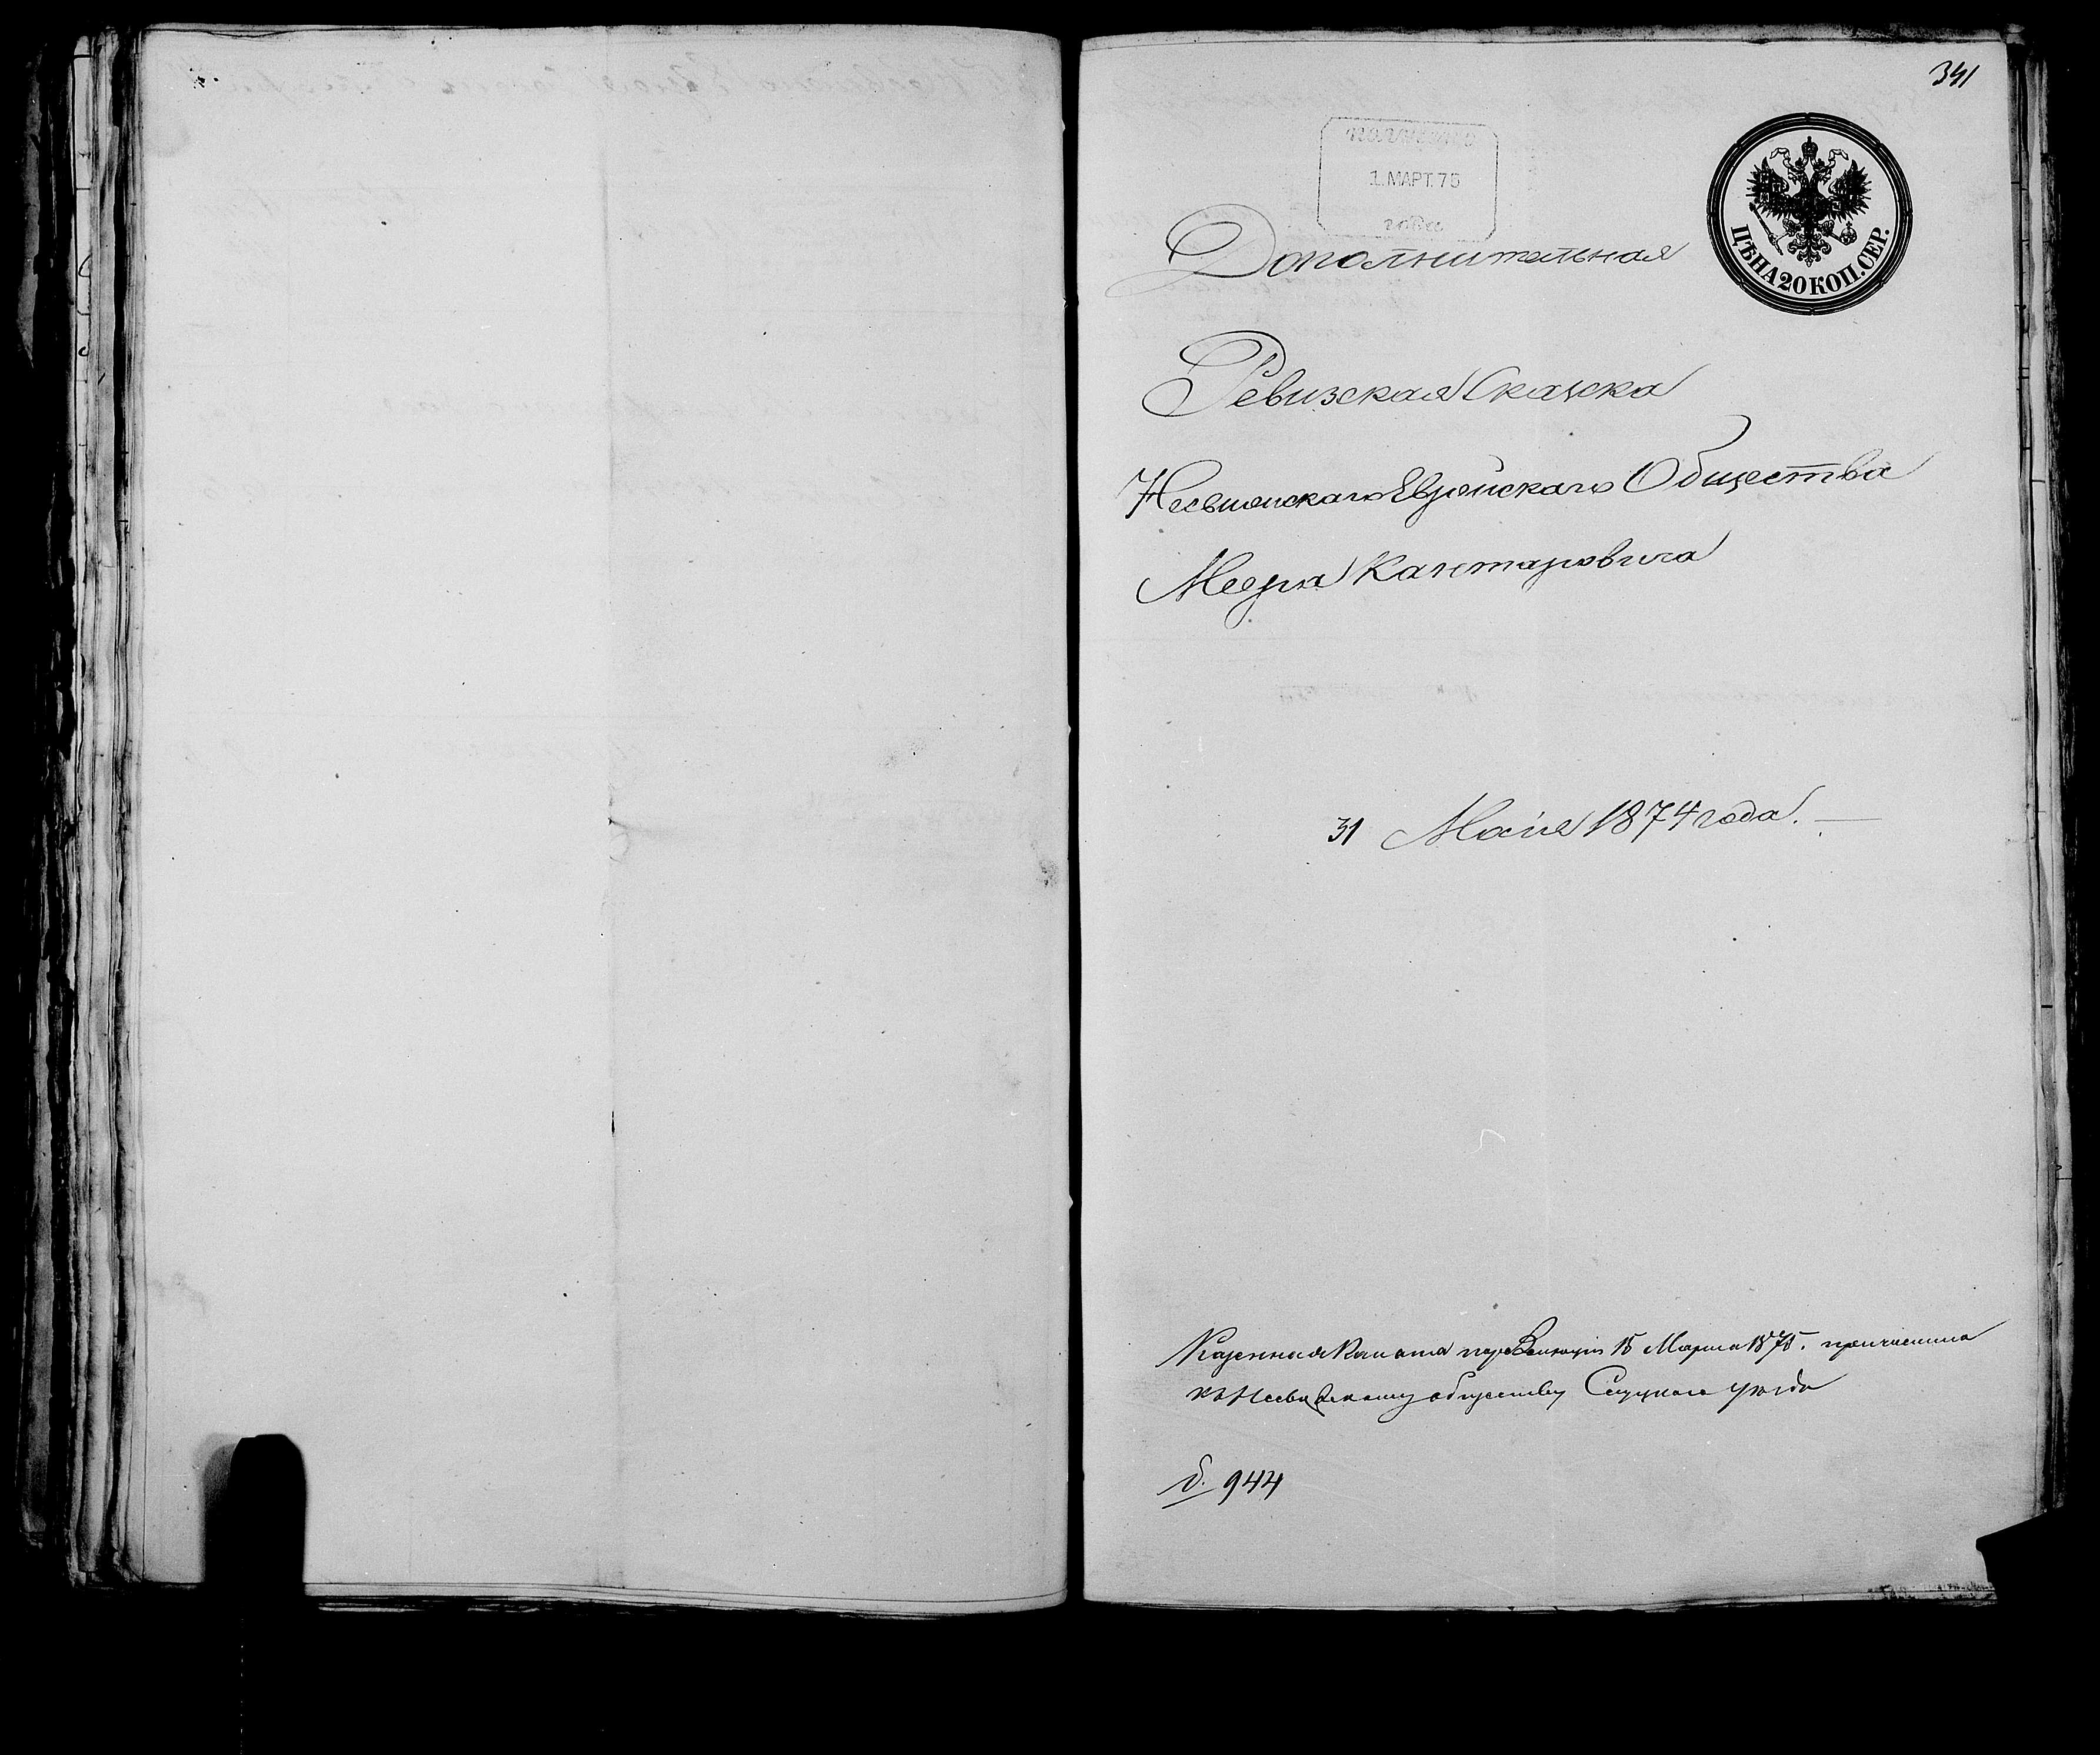 341
ПОЛУЧЕНО
1 МАРТ. 75
года
ЦѢНА 20 КОП. СЕР.
Дополнительная
Ревизская Сказка
Несвижскаго Еврейскаго Общества
Меера Кантаровича
31 Маія 1874 года.
Казенная Палата 15 Марта 1875. причислила
къ Несвижскому обществу Слуцкаго уѣзда
944